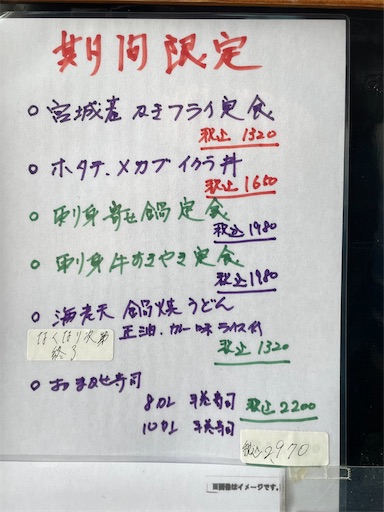 期間限定
○ 宮城産カキフライ定食
税込 1320
○ ホタテ、メカブイクラ丼
税込 1650
○ 刺身寄せ鍋定食
税込 1980
○ 刺身牛すきやき定食
税込 1980
○ 海老天 鍋焼うどん
なくなり次第
終了
正油、カレー味 ライス付
税込 1320
○ おまかせ寿司
8カン 半巻寿司 税込 2200
10カン 半巻寿司
税込 2,970
※画像はイメージです。